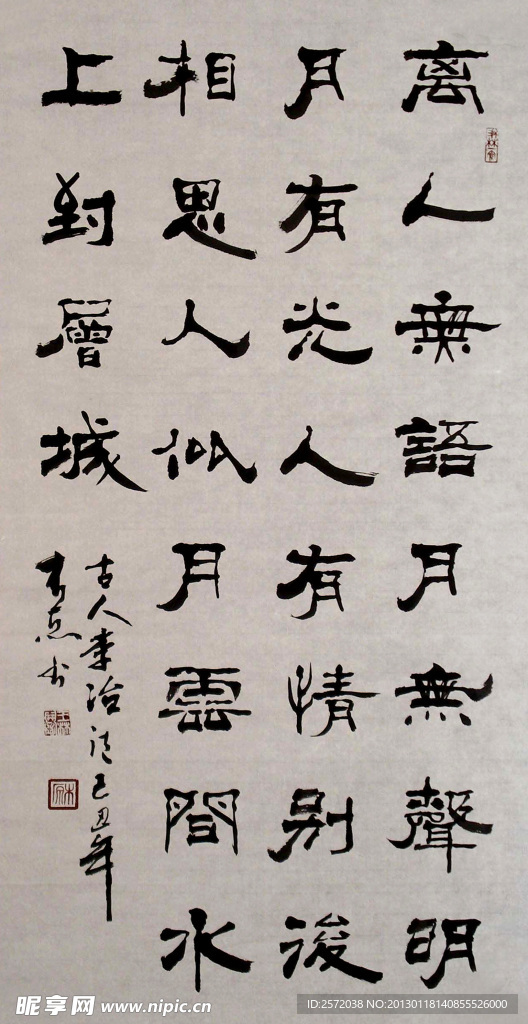 离人無語月無聲明
月有光人有情别後
相思人似月雲間水
上對層城
古人李冶诗己丑年
书
昵享网 www.nipic.cn
ID:2572038 NO:20130118140855526000